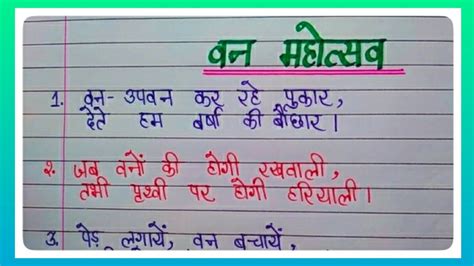 वन महोत्सव
1. वन-उपवन कर रहे पुकार,
देते हम वर्षा की बौछार।
२. जब वनों की होगी रखवाली,
तभी पृथ्वी पर होगी हरियाली।
3. पेड़ लगायें, वन बचायें,